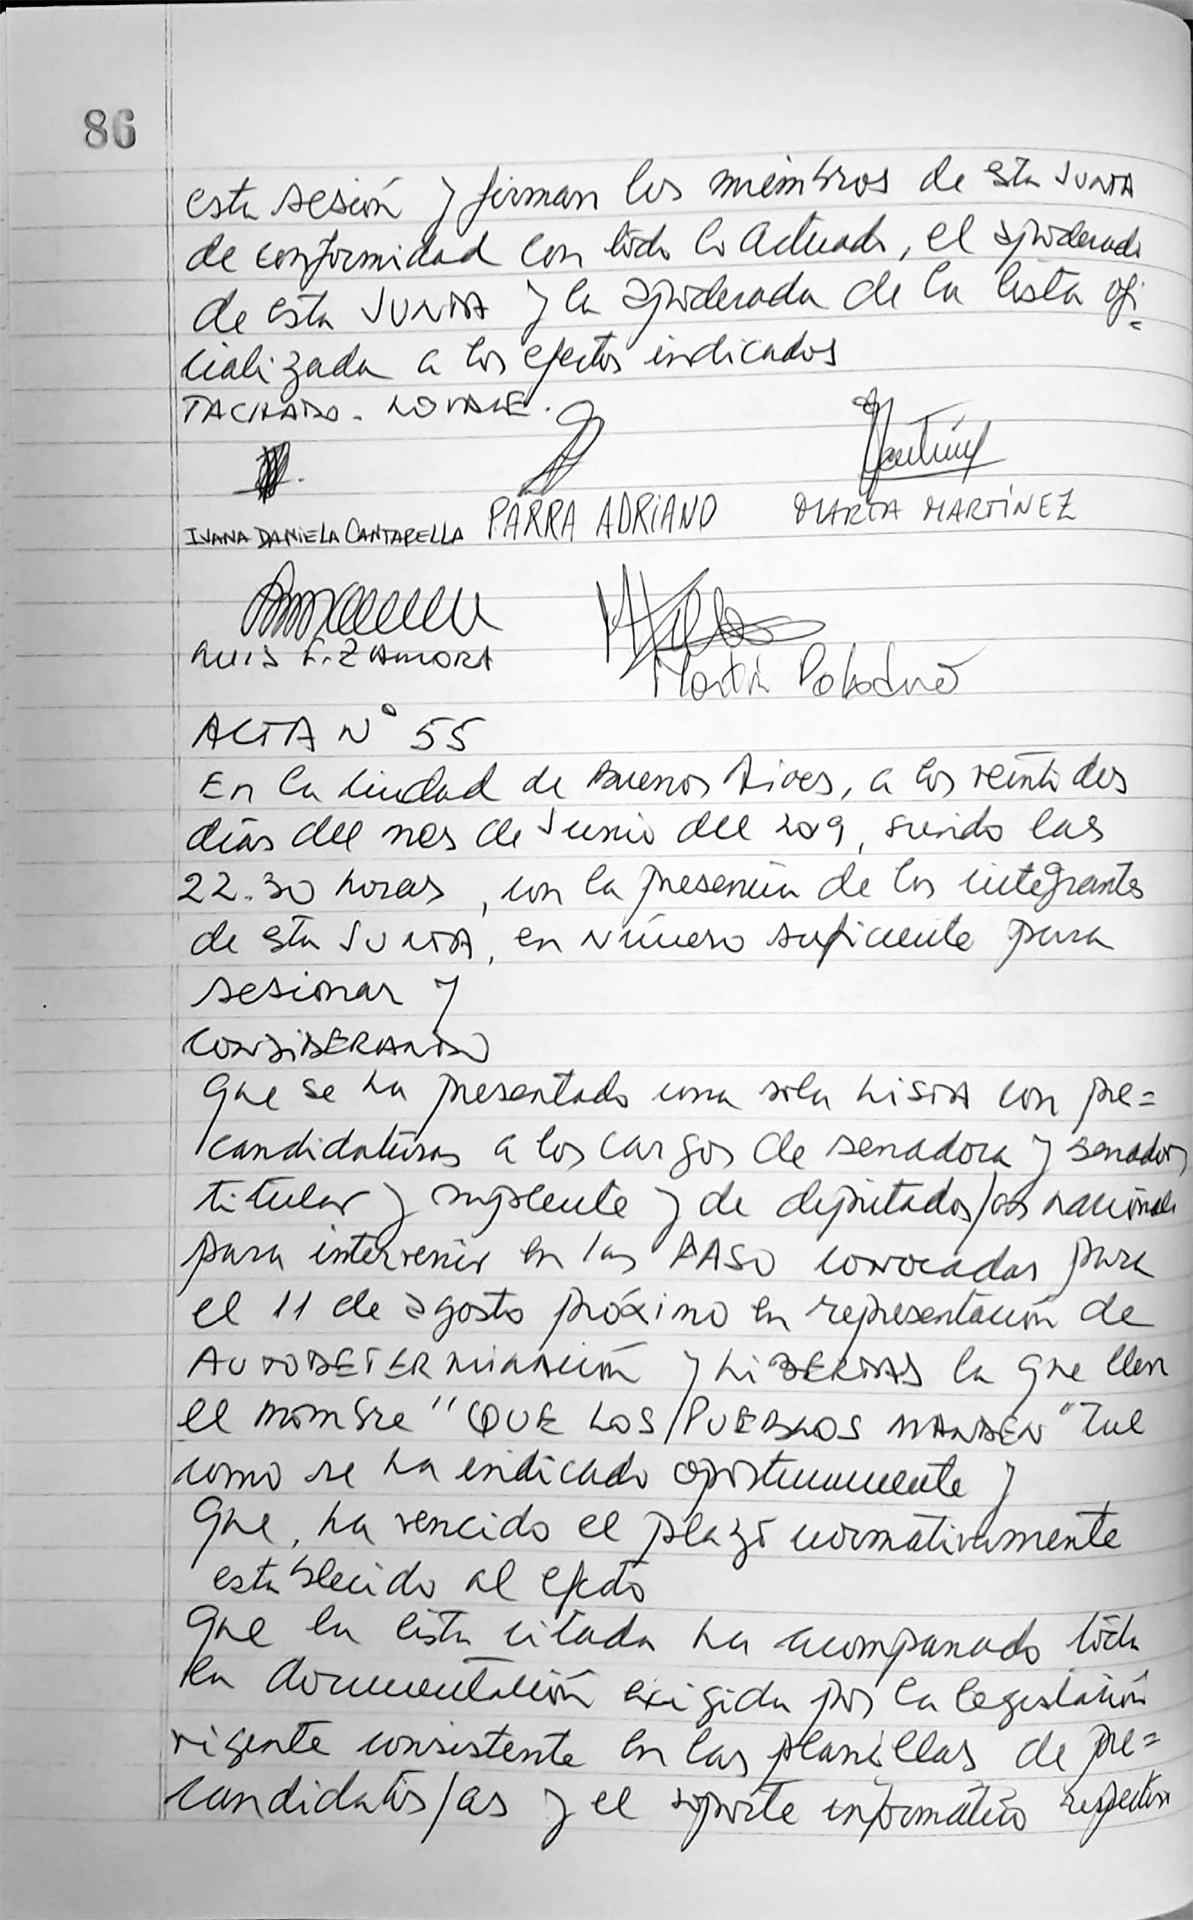 86
esta sesión y firman los miembros de esta JUNTA
de conformidad con todo lo actuado, el apoderado
de esta JUNTA y la apoderada de la lista ofi=
cializada a los efectos indicados
TACHADO - NO VALE.
IVANA DANIELA CANTARELLA PARRA ADRIANO MARTA MARTÍNEZ
LUIS F. ZAMORA
Martín
ACTA N° 55
En la ciudad de Buenos Aires, a los veintidos
días del mes de Junio del 2019, siendo las
22.30 horas, con la presencia de los integrantes
de esta JUNTA, en número suficiente para
sesionar y
CONSIDERANDO
Que se ha presentado una sola LISTA con pre=
candidaturas a los cargos de senadora y senador,
titular y suplente y de diputados/as nacionales
para intervenir en las PASO convocadas para
el 11 de agosto próximo en representación de
AUTODETERMINACIÓN y LIBERTAD la que lleva
el nombre "QUE LOS PUEBLOS MANDEN" tal
como se ha indicado oportunamente y
Que, ha vencido el plazo normativamente
establecido al efecto
Que la lista citada ha acompañado toda
la documentación exigida por la legislación
vigente consistente en las planillas de pre=
candidatos/as y el soporte informático respectivo